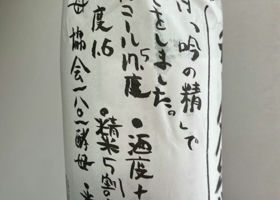 は、「吟の精」で
をしました。
コール17.5度 ●酒度+
度1.6 ●精米5割
母 協会一八〇一酵母